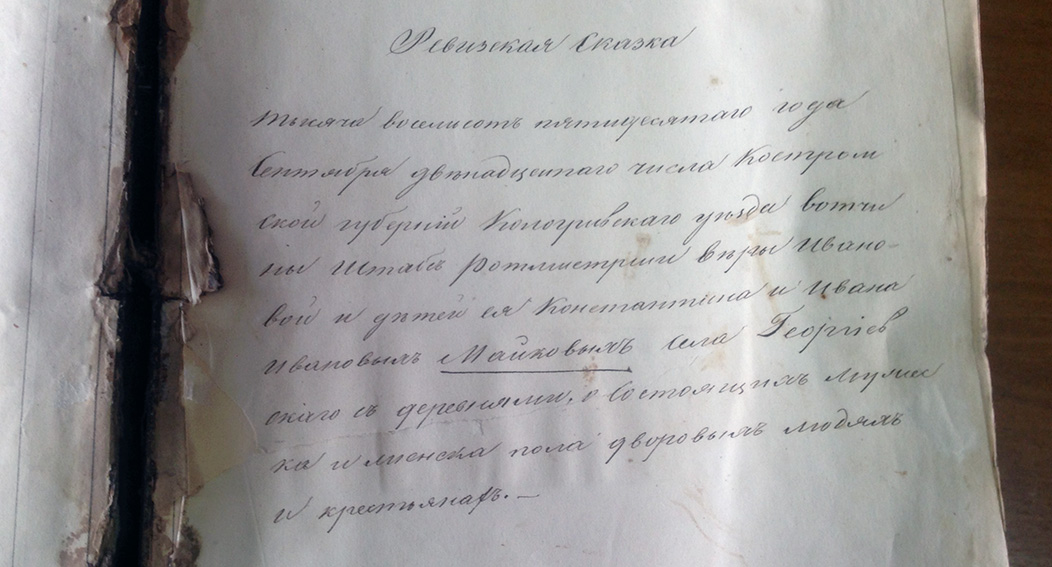 Ревизская Сказка
тысяча восемьсотъ пятидесятаго года
Сентября двенадцатаго числа Костром
ской губерніи Кологривскаго уѣзда вотчи
ны Штабъ Ротмистрши Вѣры Ивано-
вой и дѣтей ея Константина и Ивана
Ивановыхъ Майковыхъ села Георгіев
скаго съ деревнями, о состоящихъ мужес
ка и женска пола дворовыхъ людяхъ
и крестьянахъ. —